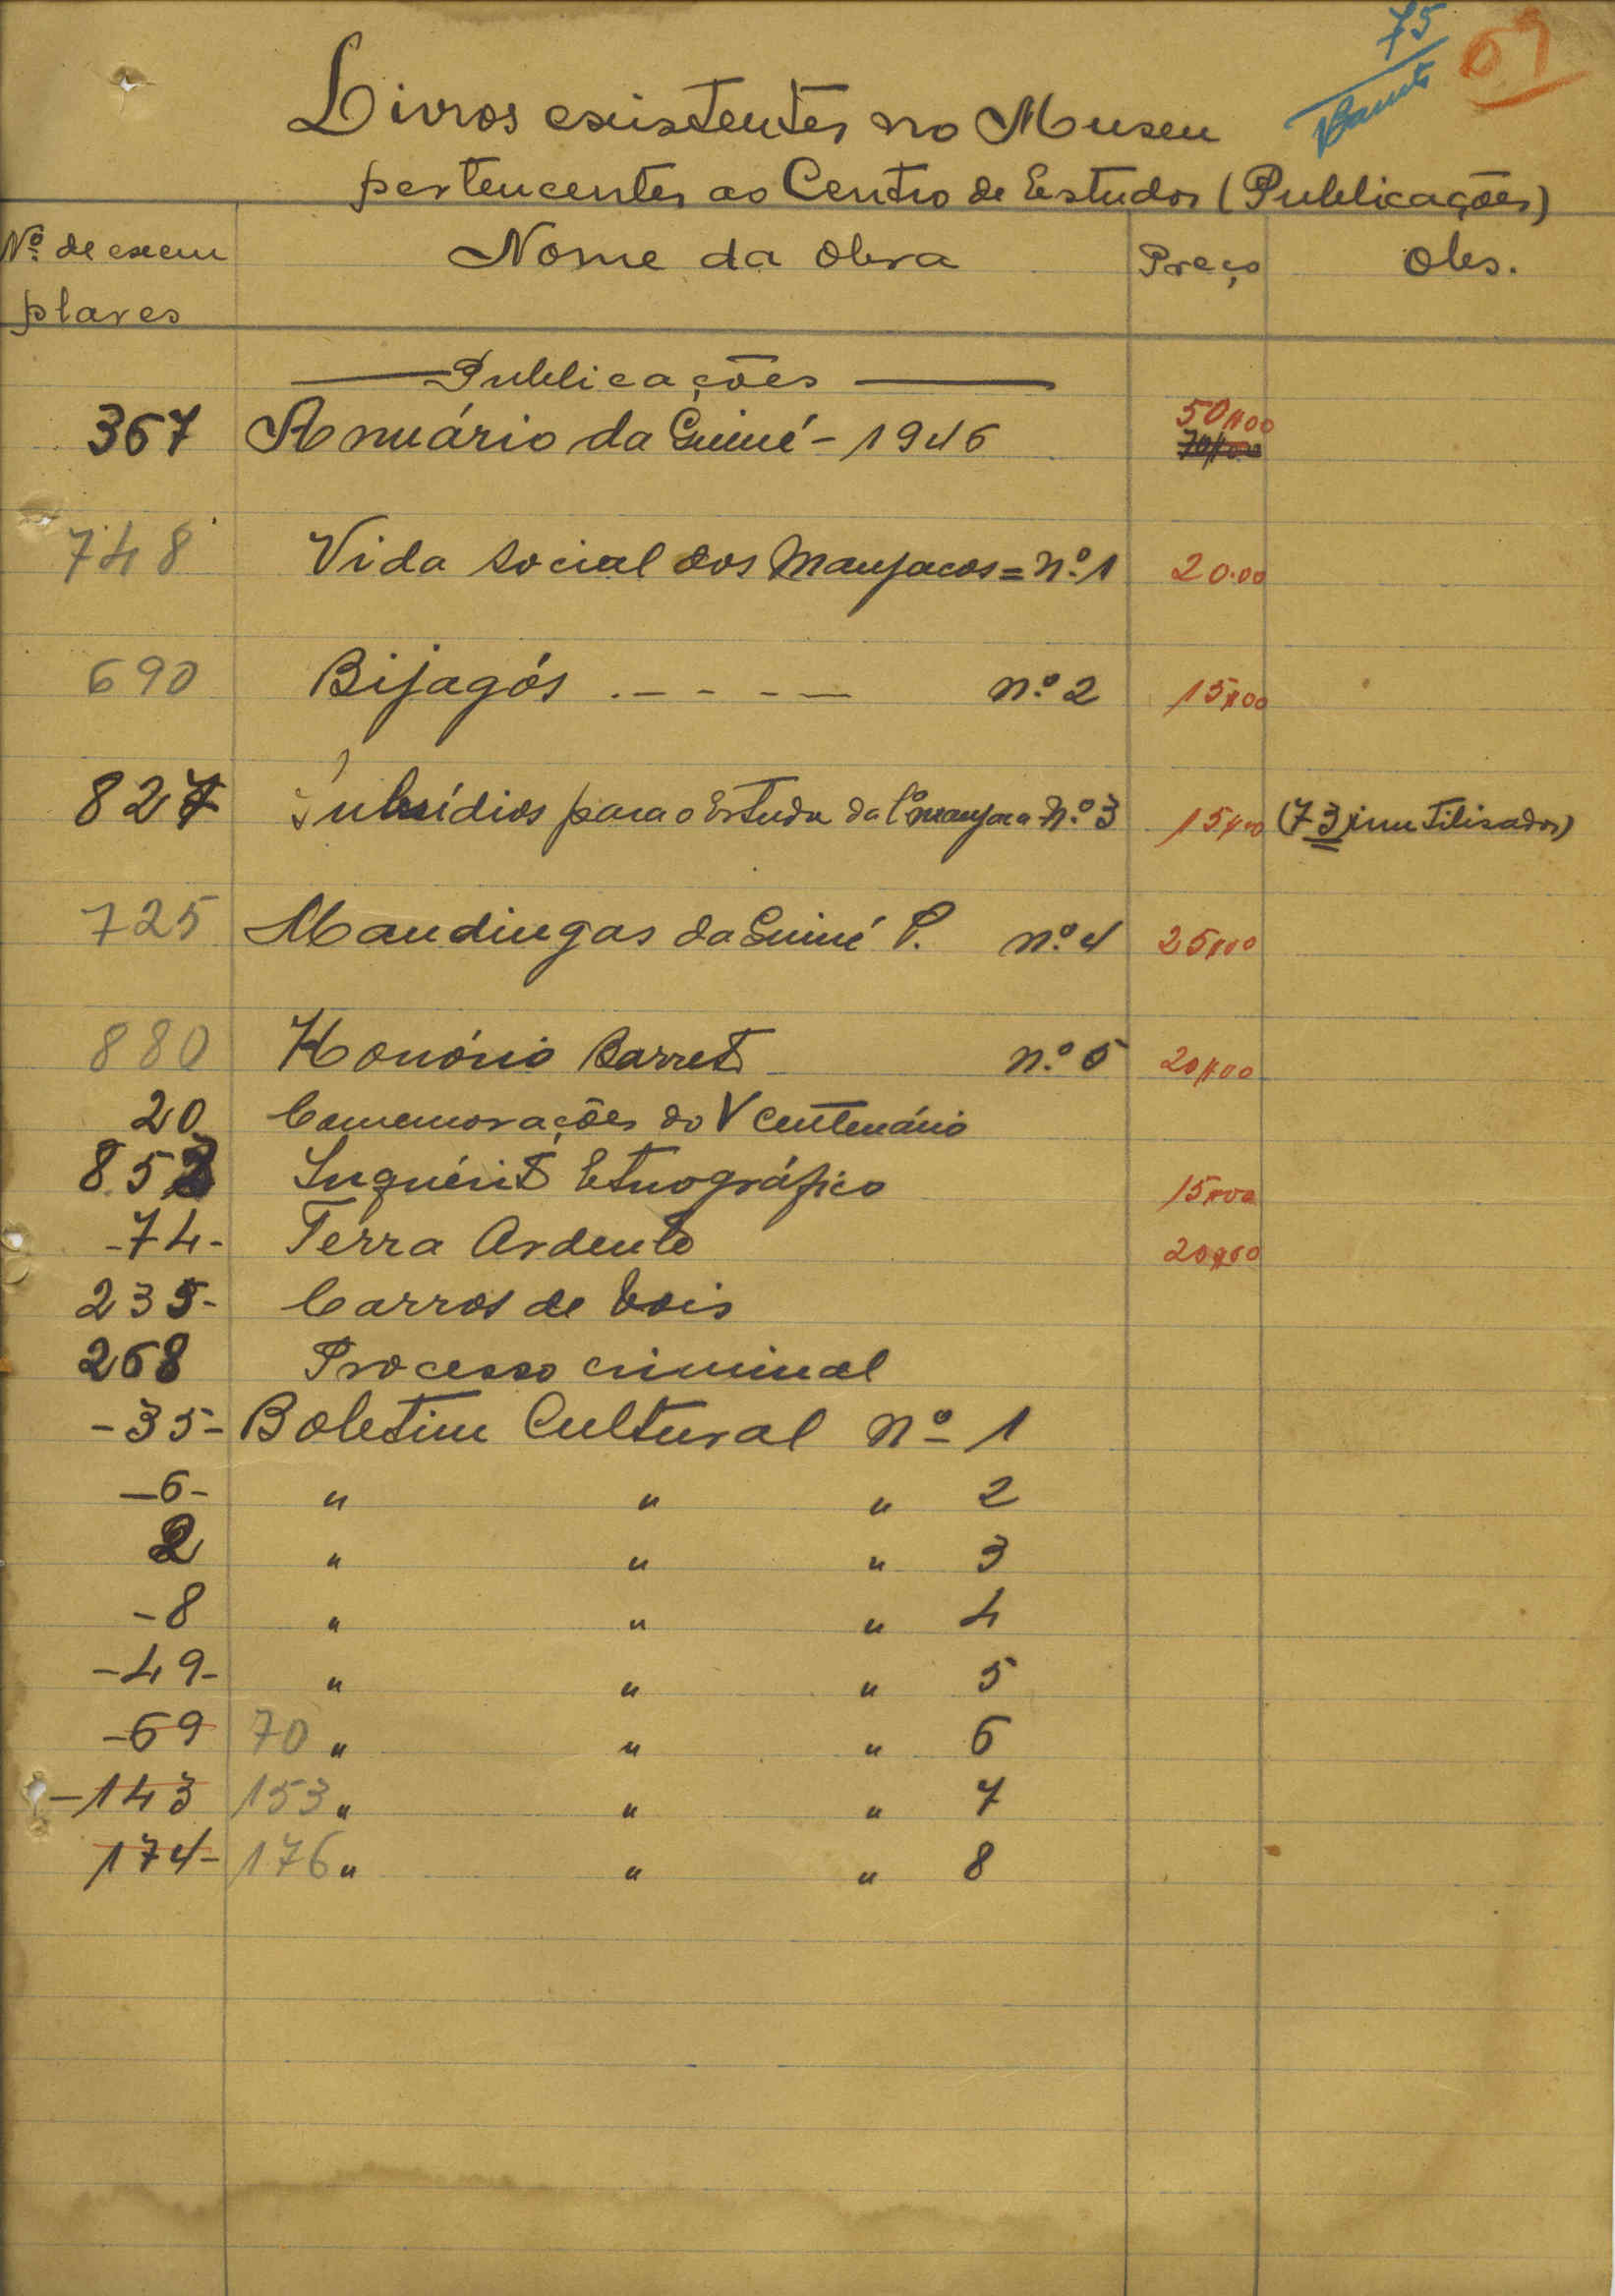 75
Livros existentes no Museu
pertencentes ao Centro de Estudos (Publicações)
Nº de exem Nome da Obra Preço Obs.
plares
Publicações
367 Anuário da Guiné - 1946 50$00
70$00
748 Vida social dos Manjacos = nº 1 20.00
690 Bijagós . - - - - nº 2 15$00
827 Subsídios para o Estudo da Cª manjaca Nº 3 15$00 (73) inutilisados)
725 Mandingas da Guiné P. nº 4 25$00
880 Honório Barreto nº 5 20$00
20 Comemorações do V Centenário
852 Inquérito Etnográfico 15$00
-74- Terra Ardente 20$00
235- Carros de bois
268 Processo criminal
-35- Boletim Cultural Nº 1
-6- " " " 2
2 " " " 3
-8 " " " 4
-49- " " " 5
-69 70 " " " 6
-143 153 " " " 7
174- 176 " " " 8